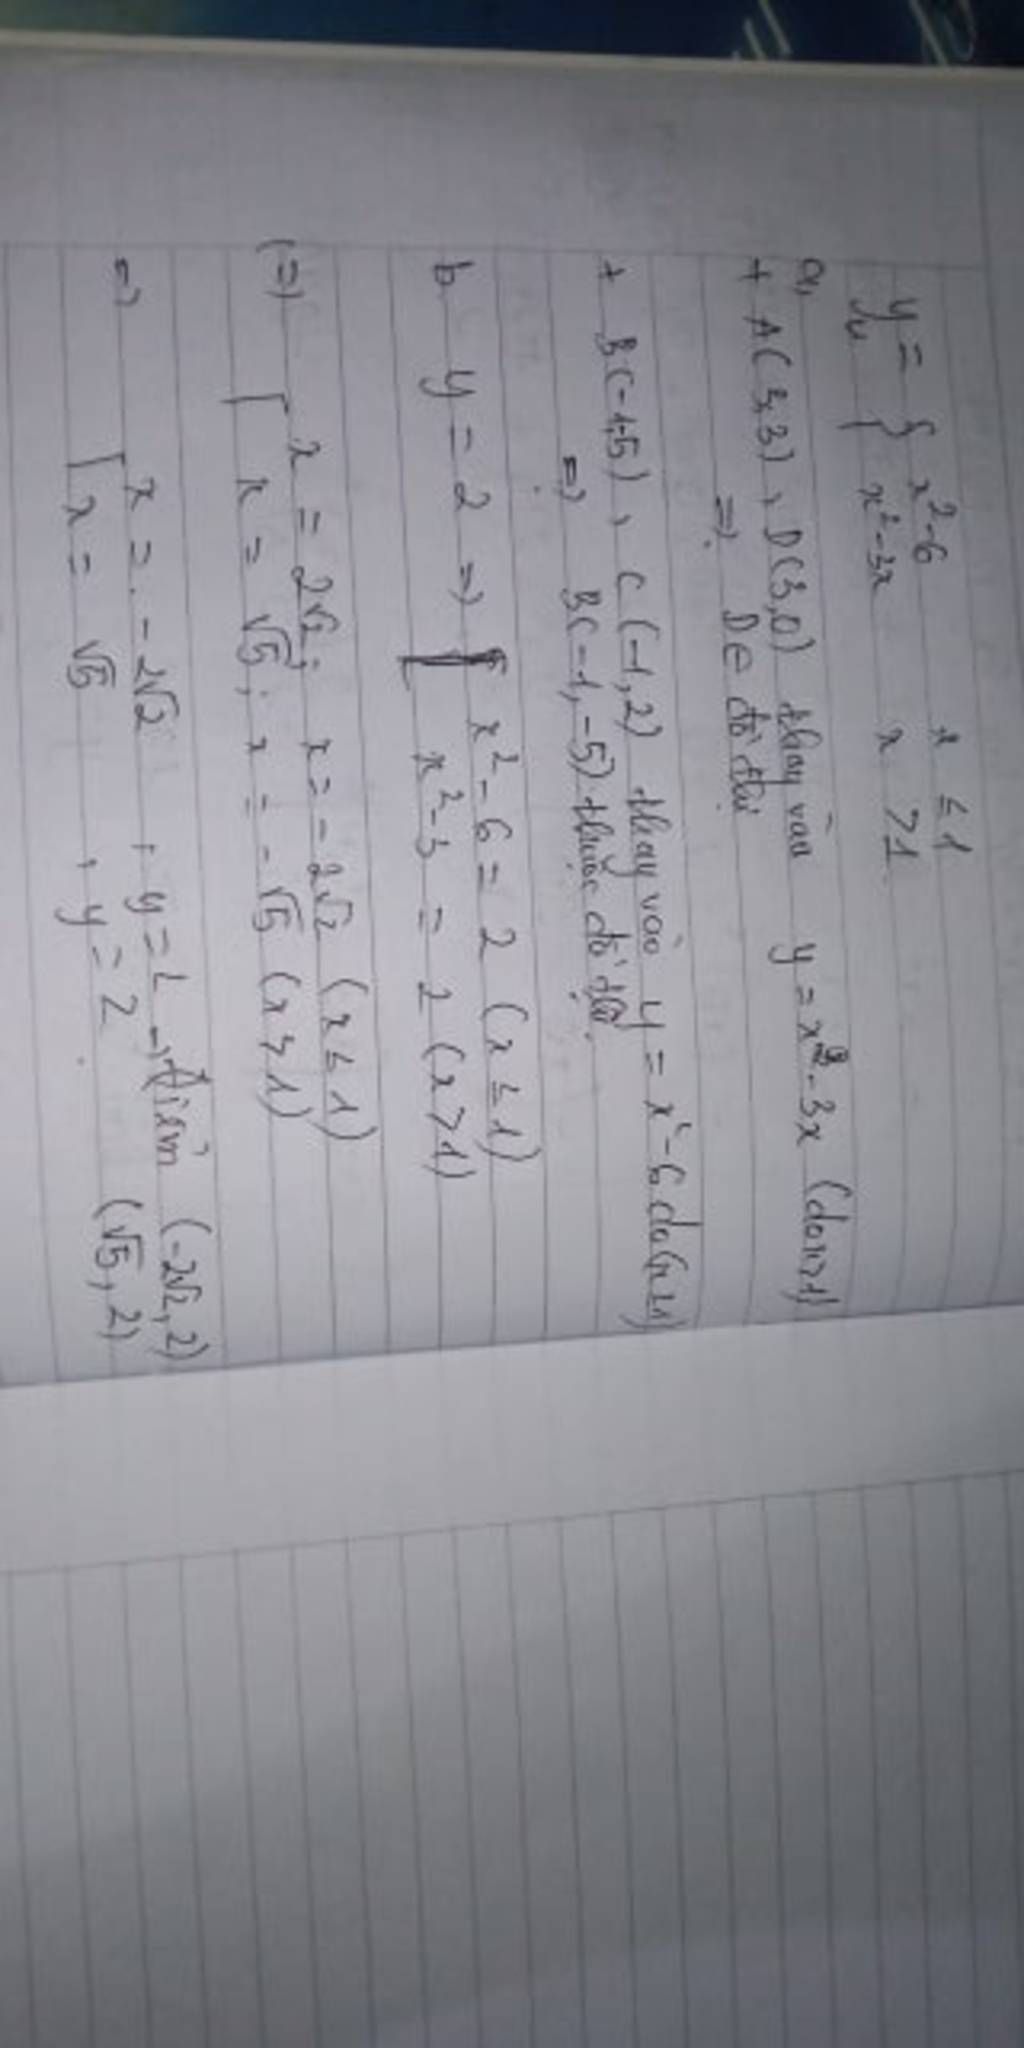 y = { x² - 6 x ≤ 1
x² - 3x x > 1
a,
+ A(3,3), D(3,0) thay vào y = x² - 3x (do x>1)
=> D ∈ đồ thị
+ B(-1,-5), C(-1,2) thay vào y = x² - 6 do (x≤1)
=> B(-1,-5) thuộc đồ thị
b y = 2 => [ x² - 6 = 2 (x ≤ 1)
x² - 3 = 2 (x > 1)
(=) [ x = 2√2; x = -2√2 (x ≤ 1)
x = √5; x = -√5 (x > 1)
=> [ x = -2√2, y = 2 → điểm (-2√2, 2)
x = √5, y = 2 (√5, 2)